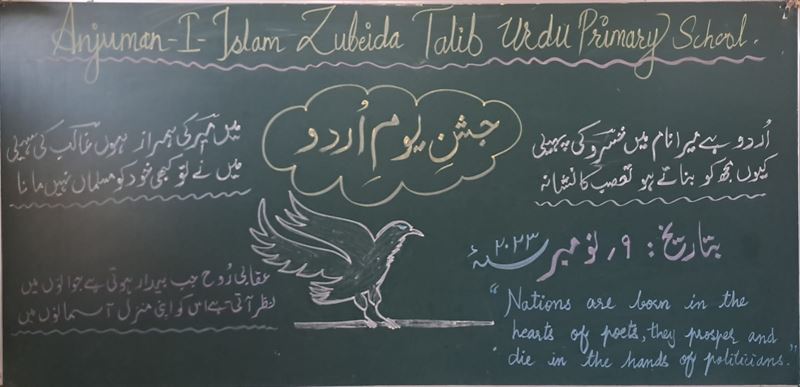 Anjuman-I-Islam Zubeida Talib Urdu Primary School.
جشنِ یومِ اُردو
اُردو ہے میرا نام میں خسرو کی پہیلی
میں میر کی ہمراز ہوں غالب کی سہیلی
کیوں مجھ کو بناتے ہو تعصب کا نشانہ
میں نے تو کبھی خود کو مسلماں نہیں مانا
بتاریخ: ۹؍ نومبر ۲۰۲۳ء
عقابی رُوح جب بیدار ہوتی ہے جوانوں میں
نظر آتی ہے اس کو اپنی منزل آسمانوں میں
"Nations are born in the
hearts of poets, they prosper and
die in the hands of politicians."